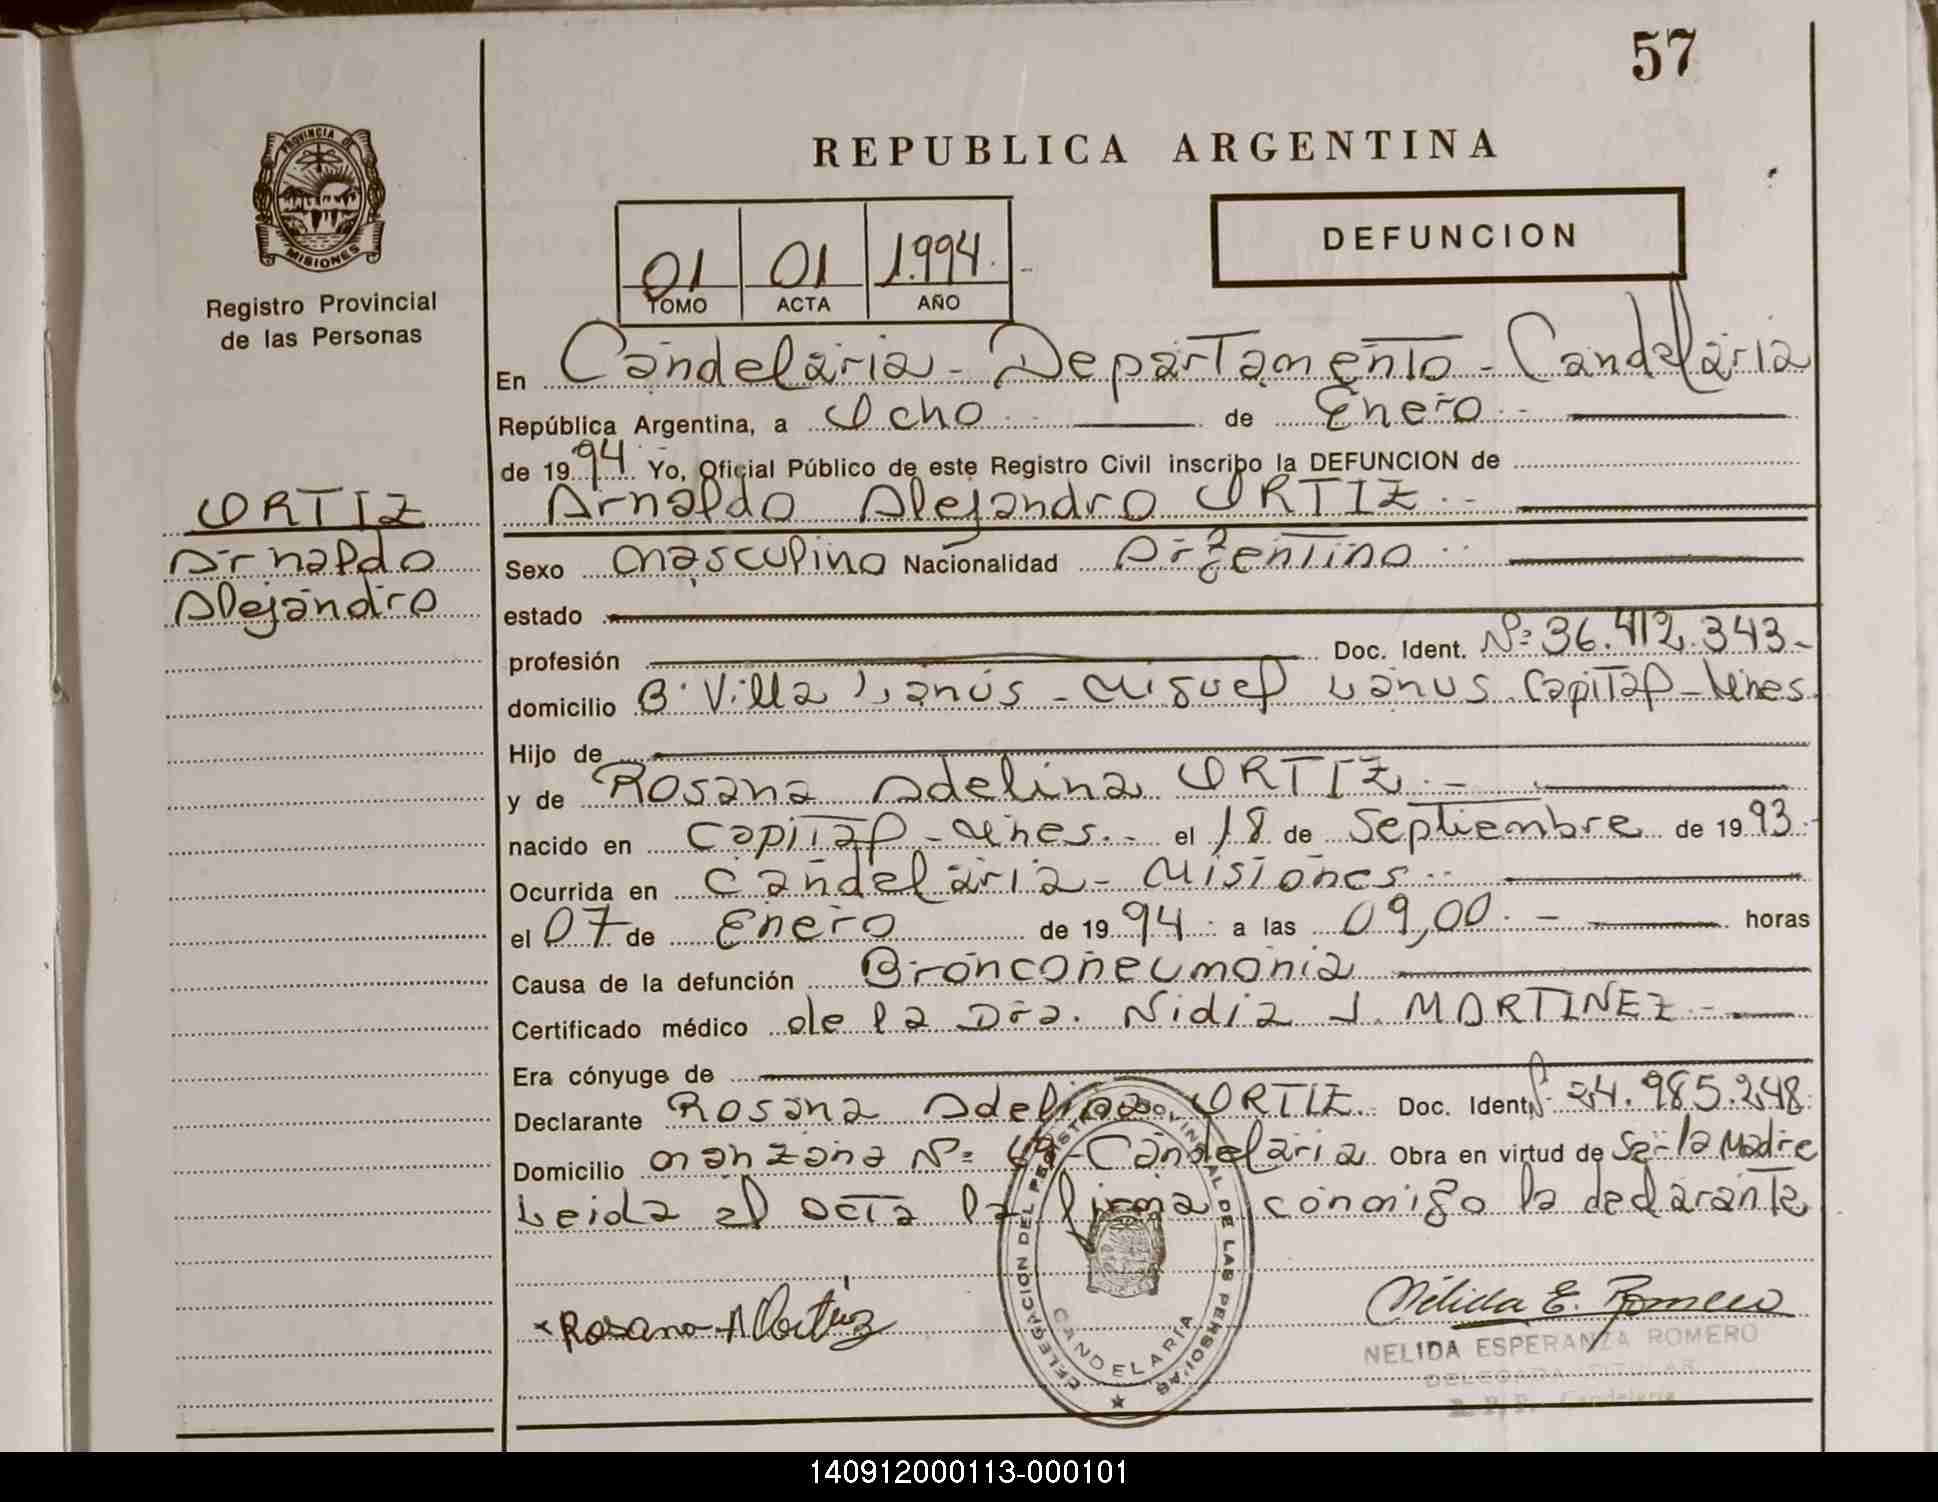 57
PROVINCIA DE
MISIONES
Registro Provincial
de las Personas
REPUBLICA ARGENTINA
DEFUNCION
01 01 1.994.
TOMO ACTA AÑO
En Candelaria - Departamento - Candelaria
República Argentina, a Ocho de Enero
de 1994 Yo, Oficial Público de este Registro Civil inscribo la DEFUNCION de
ORTIZ
Arnaldo
Alejandro
Arnaldo Alejandro ORTIZ
Sexo masculino Nacionalidad Argentino
estado
profesión Doc. Ident. Nº 36.412.343-
domicilio B. Villa Lanús - Miguel Lanus Capital - Mnes
Hijo de
y de Rosana Adelina ORTIZ
nacido en Capital - Mnes. el 18 de Septiembre de 1993
Ocurrida en Candelaria - Misiones
el 07 de Enero de 1994 a las 09,00 horas
Causa de la defunción Bronconeumonia
Certificado médico de la Dra. Nidia J. MARTINEZ
Era cónyuge de
Declarante Rosana Adelina ORTIZ Doc. Ident. Nº 24.985.248
Domicilio manzana Nº - Candelaria Obra en virtud de Ser la Madre
Leida el acta la firma conmigo la declarante
DELEGACION DEL REGISTRO PROVINCIAL DE LAS PERSONAS
CANDELARIA
Rosana A Ortiz
Nélida E. Romero
NELIDA ESPERANZA ROMERO
DELEGADA TITULAR
R. P. P. Candelaria
140912000113-000101